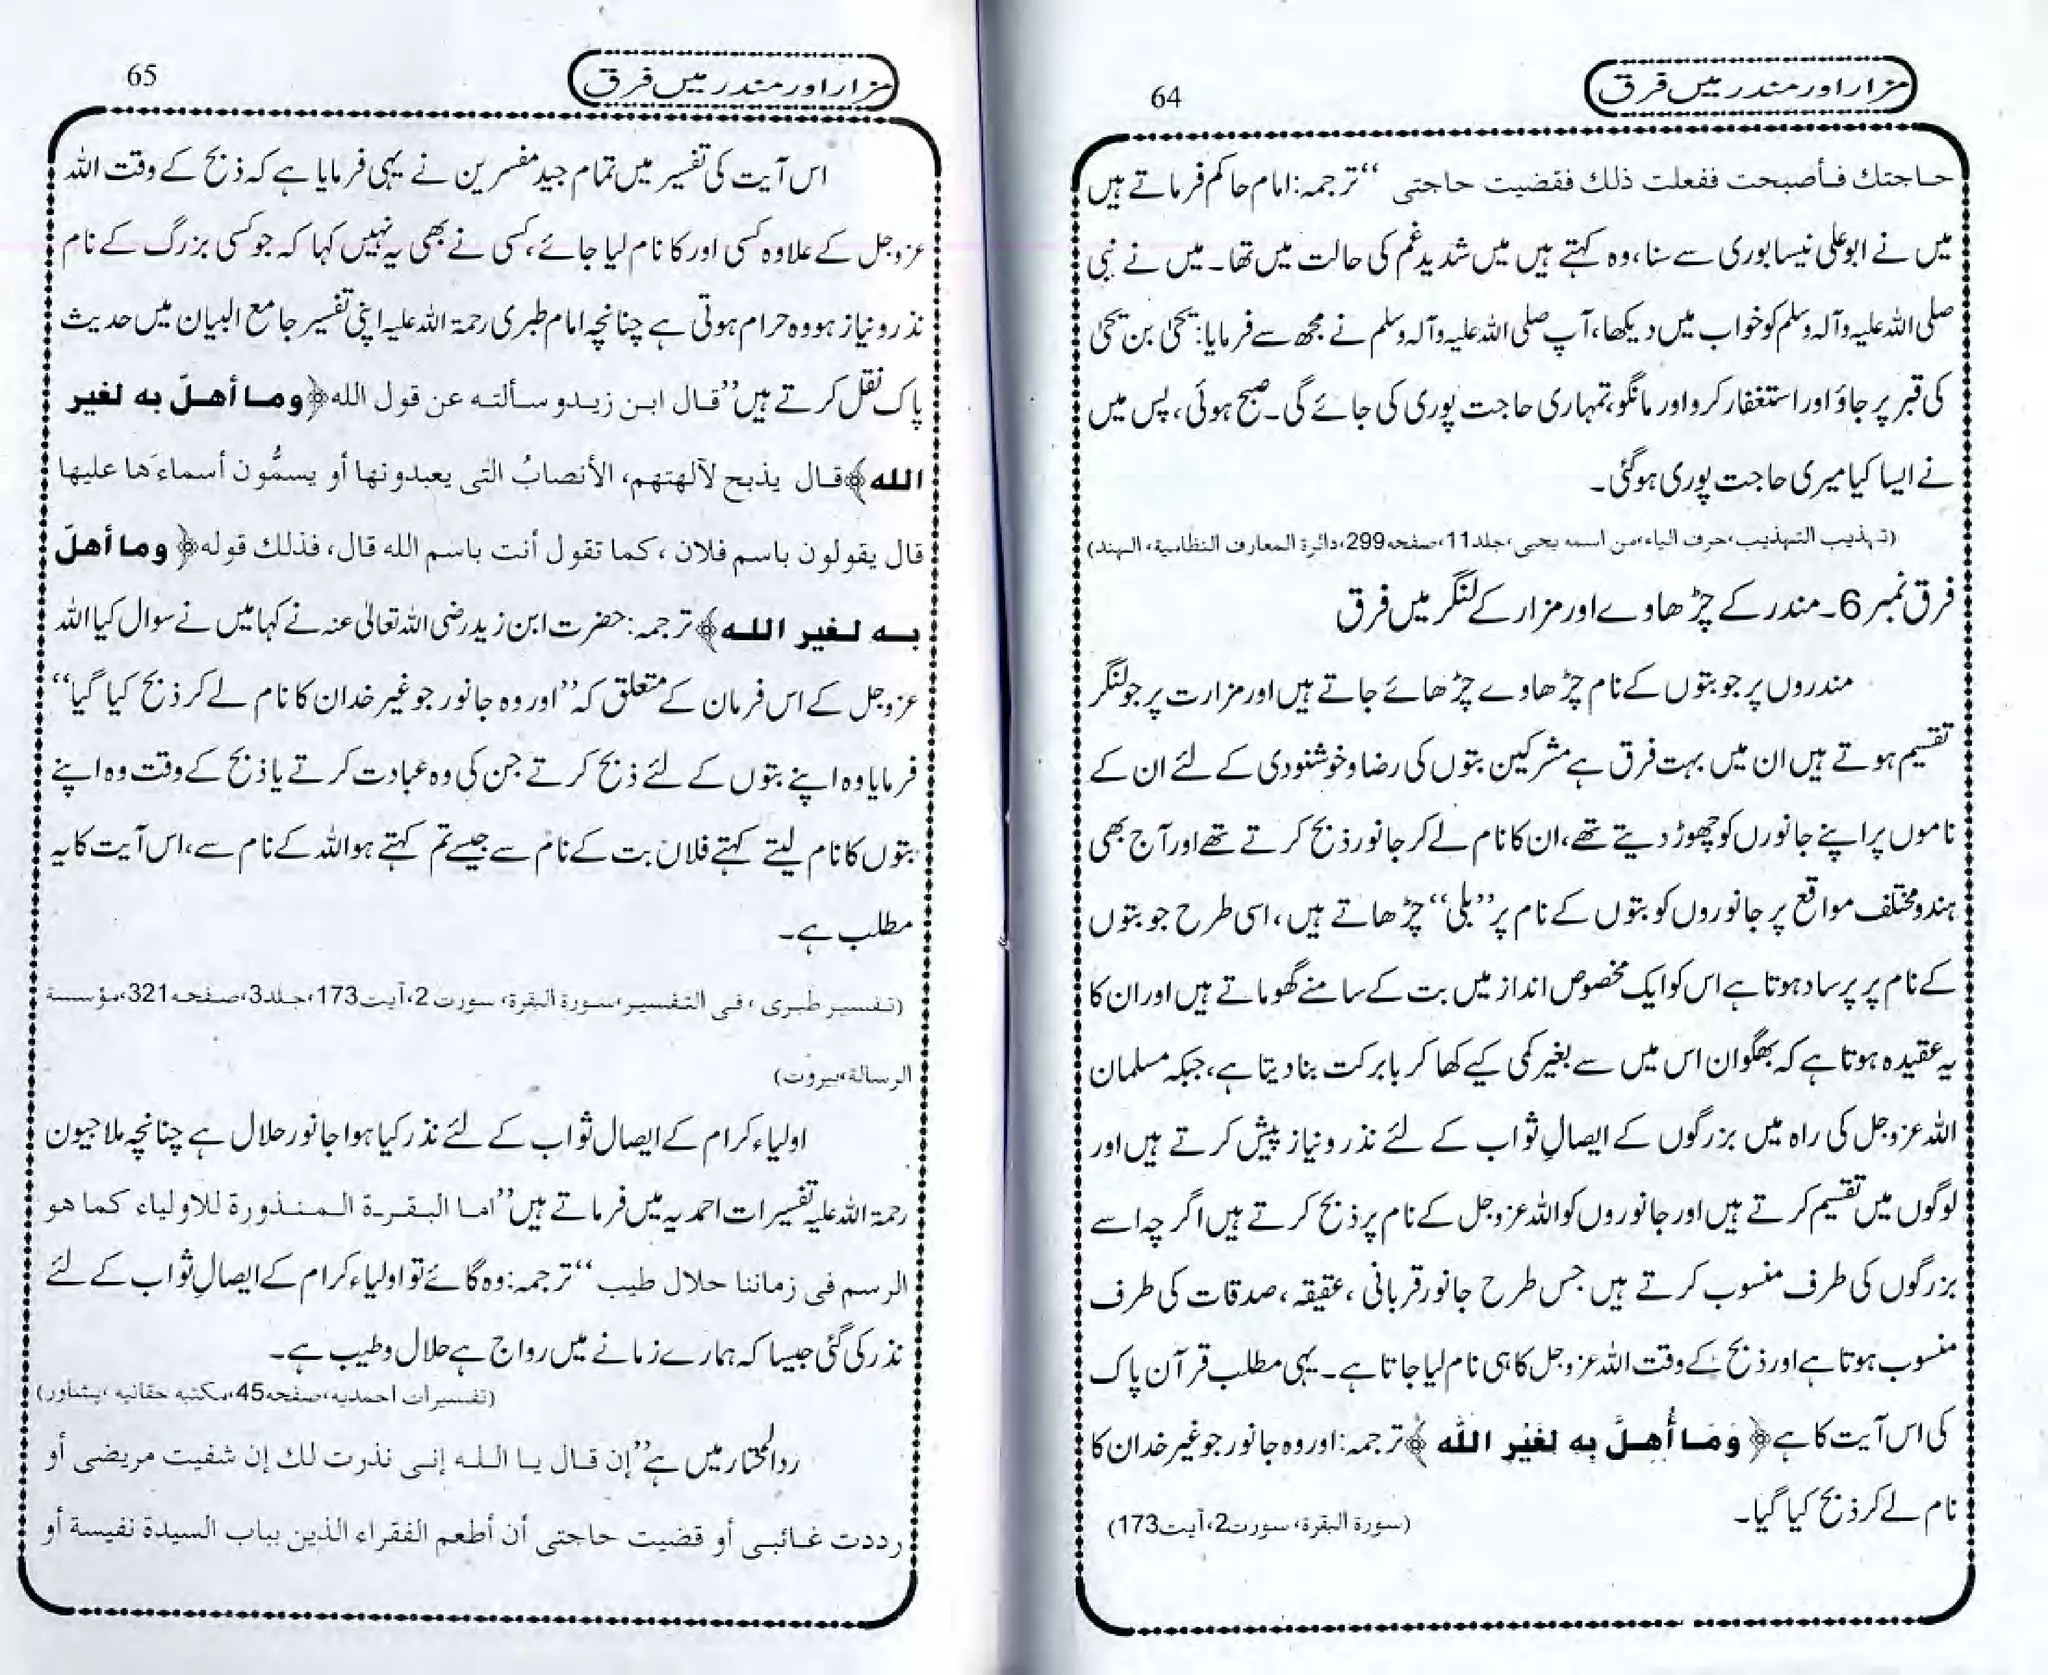 مزار اور مندر میں فرق
64
حاجتك فأصبحت ففعلت ذلك فقضيت حاجتى“ ترجمہ: امام حاکم فرماتے ہیں
میں نے ابو علی نیساپوری سے سنا، وہ کہتے ہیں میں شدید غم کی حالت میں تھا۔ میں نے نبی
صلی اللہ علیہ وآلہ وسلم کو خواب میں دیکھا، آپ صلی اللہ علیہ وآلہ وسلم نے مجھ سے فرمایا: یحیٰ بن یحیٰ
کی قبر پر جاؤ اور استغفار کرو اور مانگو، تمہاری حاجت پوری کی جائے گی۔ صبح ہوئی، پس میں
نے ایسا کیا میری حاجت پوری ہوگئی۔
(تہذیب التہذیب، حرف الیاء، من اسمہ یحیی، جلد11، صفحہ299، دائرۃ المعارف النظامیة، الہند)
فرق نمبر 6۔ مندر کے چڑھاوے اور مزار کے لنگر میں فرق
مندروں پر جو بتوں کے نام چڑھاوے چڑھائے جاتے ہیں اور مزارت پر جو لنگر
تقسیم ہوتے ہیں ان میں بہت فرق ہے مشرکین بتوں کی رضا و خوشنودی کے لئے ان کے
ناموں پر اپنے جانورں کو چھوڑ دیتے تھے، ان کا نام لے کر جانور ذبح کرتے تھے اور آج بھی
ہندو مختلف مواقع پر جانوروں کو بتوں کے نام پر ”بلی“ چڑھاتے ہیں، اسی طرح جو بتوں
کے نام پر پرساد ہوتا ہے اس کو ایک مخصوص انداز میں بت کے سامنے گھوماتے ہیں اور ان کا
یہ عقیدہ ہوتا ہے کہ بھگوان اس میں سے بغیر کمی کیے کھا کر بابرکت بنا دیتا ہے، جبکہ مسلمان
اللہ عزوجل کی راہ میں بزرگوں کے ایصالِ ثواب کے لئے نذر و نیاز پیش کرتے ہیں اور
لوگوں میں تقسیم کرتے ہیں اور جانوروں کو اللہ عزوجل کے نام پر ذبح کرتے ہیں اگر چہ اسے
بزرگوں کی طرف منسوب کرتے ہیں جس طرح جانور قربانی، عقیقہ، صدقات کی طرف
منسوب ہوتا ہے اور ذبح کے وقت اللہ عزوجل کا ہی نام لیا جاتا ہے۔ یہی مطلب قرآن پاک
کی اس آیت کا ہے ﴿وَمَا أُهِلَّ بِهِ لِغَيْرِ اللّٰه﴾ ترجمہ: اور وہ جانور جو غیر خدا ن کا
نام لے کر ذبح کیا گیا۔
(سورۃ البقرۃ، سورت2، آیت173)
مزار اور مندر میں فرق
65
اس آیت کی تفسیر میں تمام جید مفسرین نے یہی فرمایا ہے کہ ذبح کے وقت اللہ
عزوجل کے علاوہ کسی اور کا نام لیا جائے، کسی نے بھی یہ نہیں کہا کہ جو کسی بزرگ کے نام
نذر و نیاز ہو وہ حرام ہوتی ہے چنانچہ امام طبری رحمۃ اللہ علیہ اپنی تفسیر جامع البیان میں حدیث
پاک نقل کرتے ہیں ”قال ابن زيدو سألته عن قول الله ﴿وما أهلّ به لغير
الله﴾ قال يذبح لآلهتهم، الأنصابُ التى يعبدونها أو يسمُّون أسماءَ ها عليها
قال يقولون باسم فلان، كما تقول أنت باسم الله قال، فذلك قوله ﴿وما أهلّ
به لغير الله﴾ ترجمہ: حضرت ابن زید رضی اللہ تعالیٰ عنہ نے کہا میں نے سوال کیا اللہ
عزوجل کے اس فرمان کے متعلق کہ ”اور وہ جانور جو غیر خدا ن کا نام لے کر ذبح کیا گیا“
فرمایا وہ اپنے بتوں کے لئے ذبح کرتے جن کی وہ عبادت کرتے یا ذبح کے وقت وہ اپنے
بتوں کا نام لیتے کہتے فلاں بت کے نام سے جیسے تم کہتے ہو اللہ کے نام سے، اس آیت کا یہ
مطلب ہے۔
(تفسیر طبری، فی التفسیر، سورۃ البقرۃ، سورت 2، آیت173، جلد3، صفحہ321، مؤسسة
الرسالة، بیروت)
اولیاء کرام کے ایصال ثواب کے لئے نذر کیا ہوا جانور حلال ہے چنانچہ ملا جیون
رحمۃ اللہ علیہ تفسیرات احمدیہ میں فرماتے ہیں ”اما البقرة المنذورة للاولياء كما هو
الرسم فى زماننا حلال طيب“ ترجمہ: وہ گائے تو اولیاء کرام کے ایصالِ ثواب کے لئے
نذر کی گئی جیسا کہ ہمارے زمانے میں رواج ہے حلال و طیب ہے۔
(تفسیرات احمدیہ، صفحہ45، مکتبہ حقانیہ، پشاور)
ردالمحتار میں ہے ”إن قال يا الله إنى نذرت لك إن شفيت مريضى أو
رددت غائبى أو قضيت حاجتى أن أطعم الفقراء الذين بباب السيدة نفيسة أو